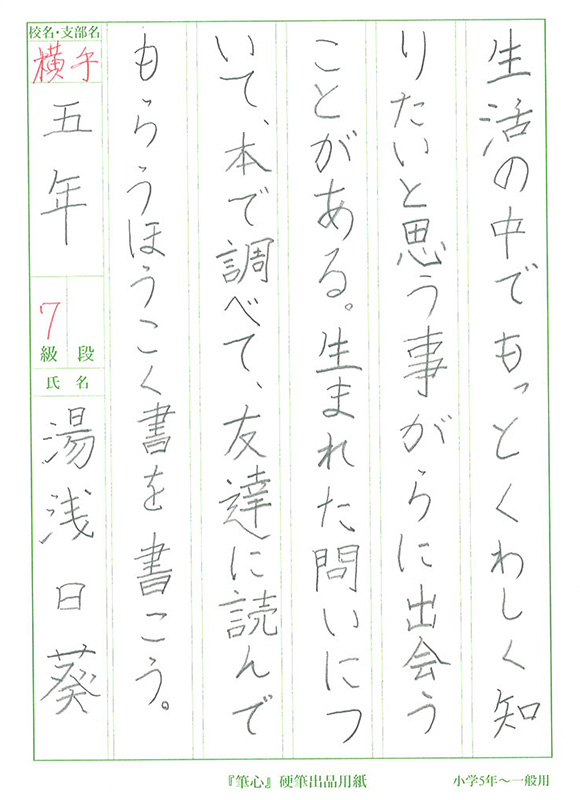 生活の中でもっとくわしく知
りたいと思う事がらに出会う
ことがある。生まれた問いにつ
いて、本で調べて、友達に読んで
もらうほうこく書を書こう。
校名・支部名
横手
五年
7
級 段
氏名
湯浅日葵
『筆心』硬筆出品用紙
小学5年〜一般用